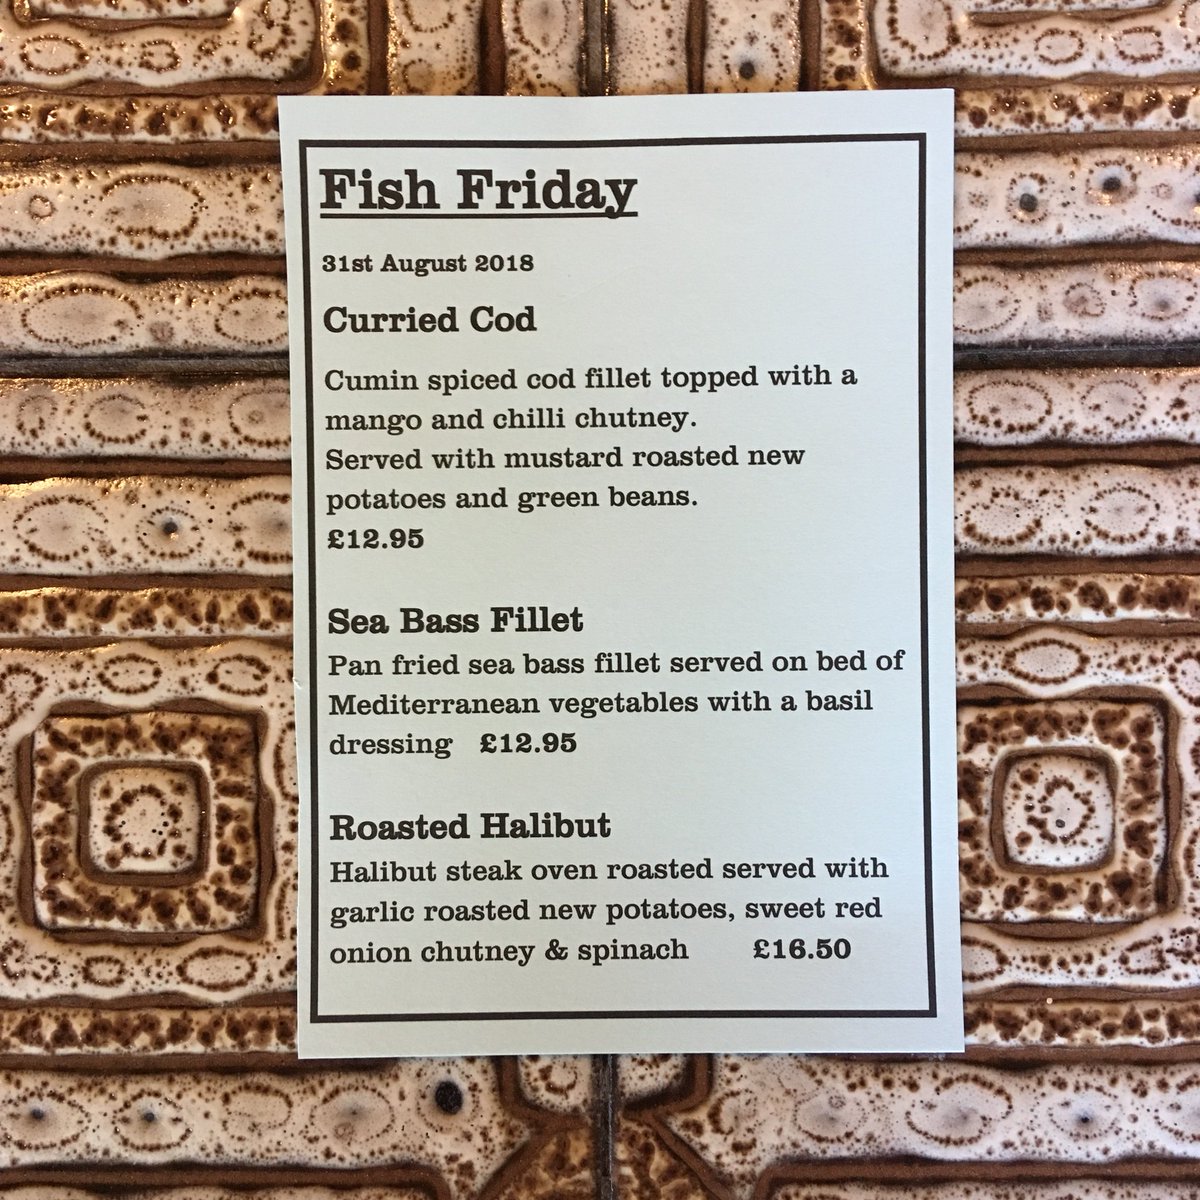 Fish Friday
31st August 2018
Curried Cod
Cumin spiced cod fillet topped with a
mango and chilli chutney.
Served with mustard roasted new
potatoes and green beans.
£12.95
Sea Bass Fillet
Pan fried sea bass fillet served on bed of
Mediterranean vegetables with a basil
dressing £12.95
Roasted Halibut
Halibut steak oven roasted served with
garlic roasted new potatoes, sweet red
onion chutney & spinach £16.50